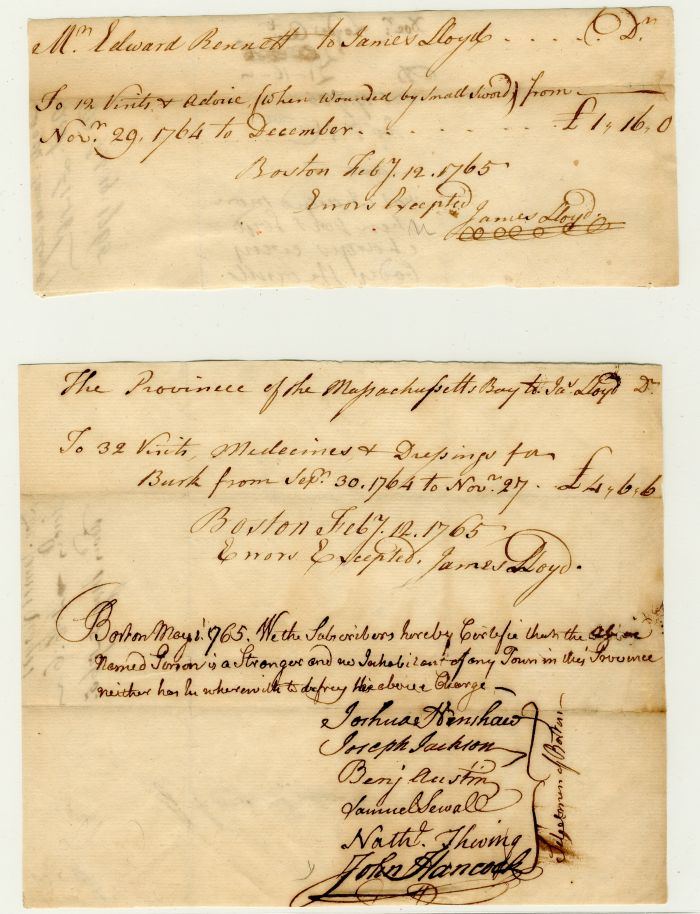 Mr. Edward Bennett to James Lloyd . . . . Dr.
To 12 Visits & Advice (when wounded by small sword) from
Novr. 29, 1764 to December . . . . . . . . £1,,16,,0
Boston Feb7. 12. 1765
Errors Excepted
James Lloyd.
The Province of the Massachusetts Bay to Jas. Lloyd Dr.
To 32 Visits, Medecines & Dressings for
Burk from Sepr. 30. 1764 to Novr. 27 . £4,,6,,6
Boston Feb7. 12. 1765
Errors Excepted. James Lloyd.
Boston May 1. 1765. We the Subscribers hereby Certifie that the above
Named Person is a Stranger and no Inhabitant of any Town in this Province
neither has he wherewith to defrey the above Charge
Joshua Henshaw
Joseph Jackson
Benj Austin
Samuel Sewall
Nathl. Thwing
John Hancock
Selectmen of Boston